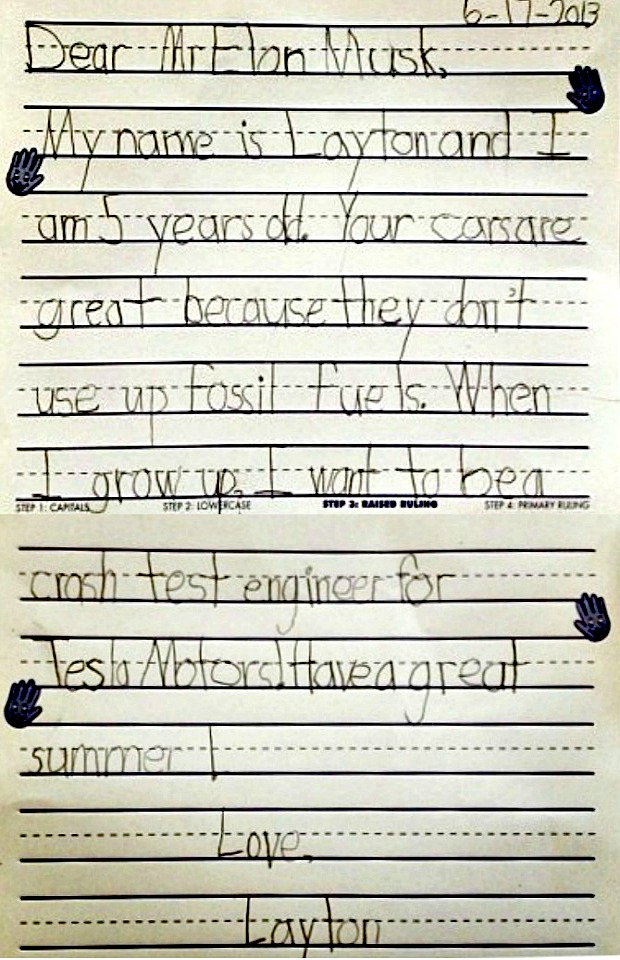 6-17-2013
Dear Mr Elon Musk,
My name is Layton and I
am 5 years old. Your cars are
great because they don't
use up fossil fuels. When
I grow up, I want to be a
STEP 1: CAPITALS STEP 2: LOWERCASE STEP 3: RAISED RULING STEP 4: PRIMARY RULING
crash test engineer for
Tesla Motors! Have a great
summer!
Love,
Layton